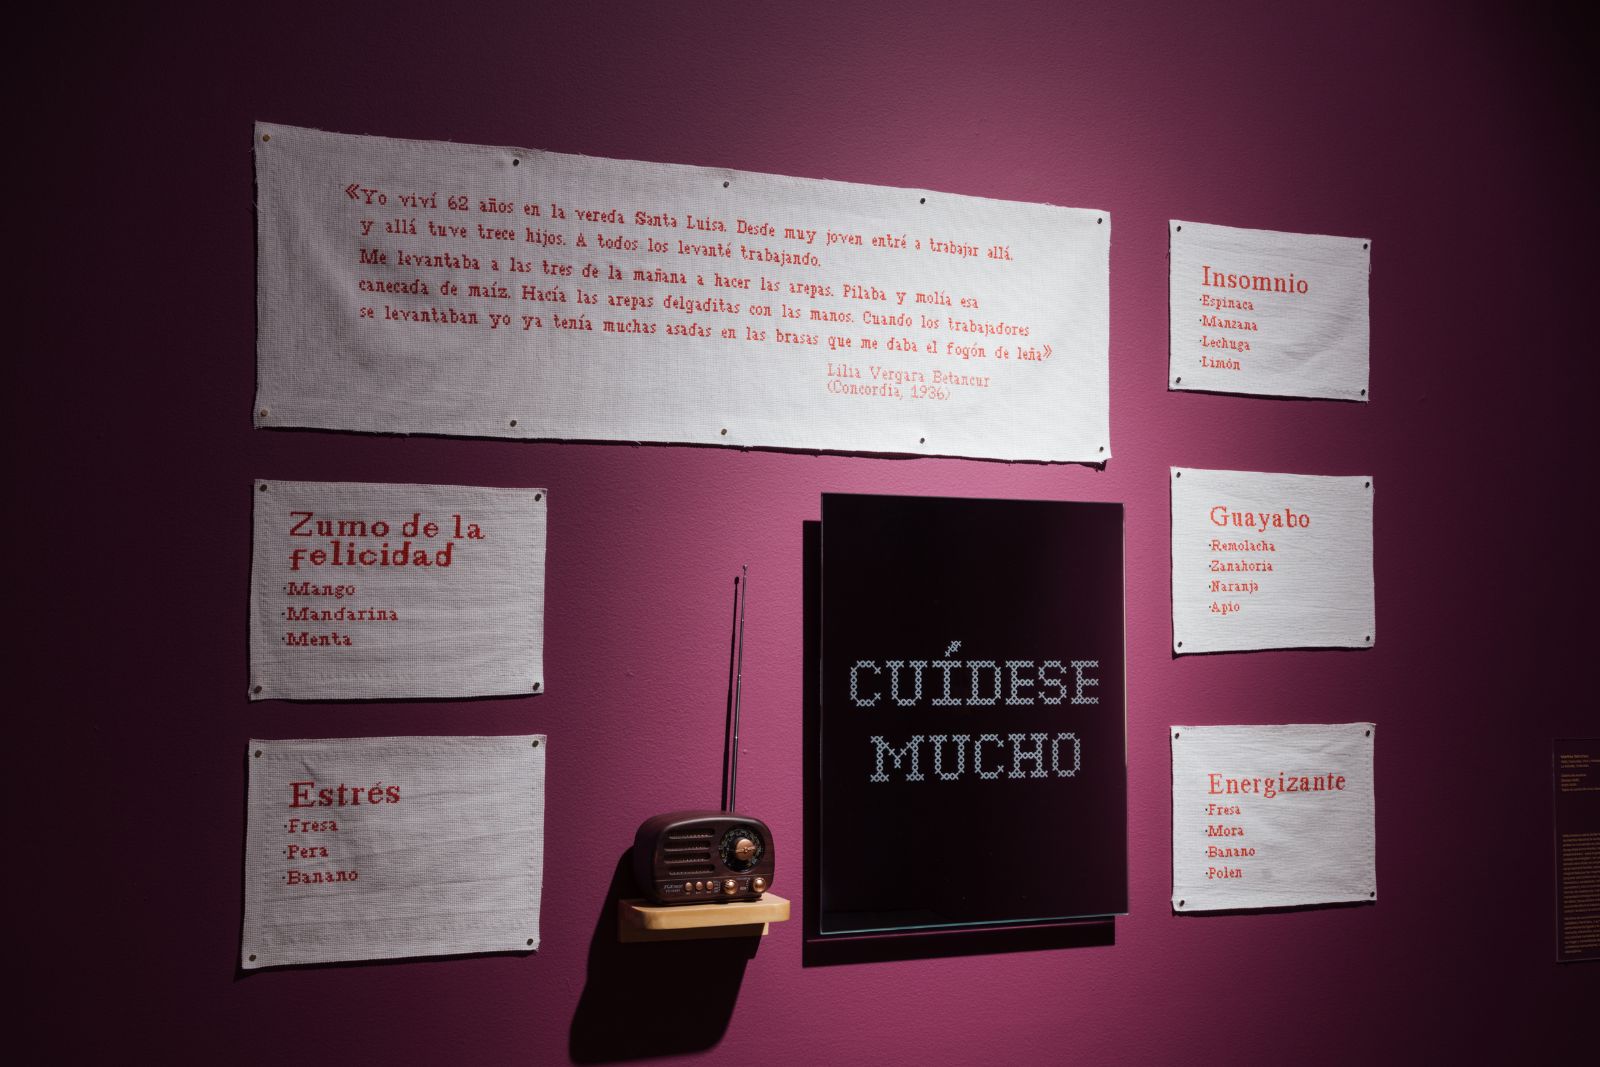 «Yo viví 62 años en la vereda Santa Luisa. Desde muy joven entré a trabajar allá.
y allá tuve trece hijos. A todos los levanté trabajando.
Me levantaba a las tres de la mañana a hacer las arepas. Pilaba y molía esa
canecada de maíz. Hacía las arepas delgaditas con las manos. Cuando los trabajadores
se levantaban yo ya tenía muchas asadas en las brasas que me daba el fogón de leña»
Lilia Vergara Betancur
(Concordia, 1936)
Zumo de la
felicidad
·Mango
·Mandarina
·Menta
Estrés
·Fresa
·Pera
·Banano
CUÍDESE
MUCHO
Insomnio
·Espinaca
·Manzana
·Lechuga
·Limón
Guayabo
·Remolacha
·Zanahoria
·Naranja
·Apio
Energizante
·Fresa
·Mora
·Banano
·Polen